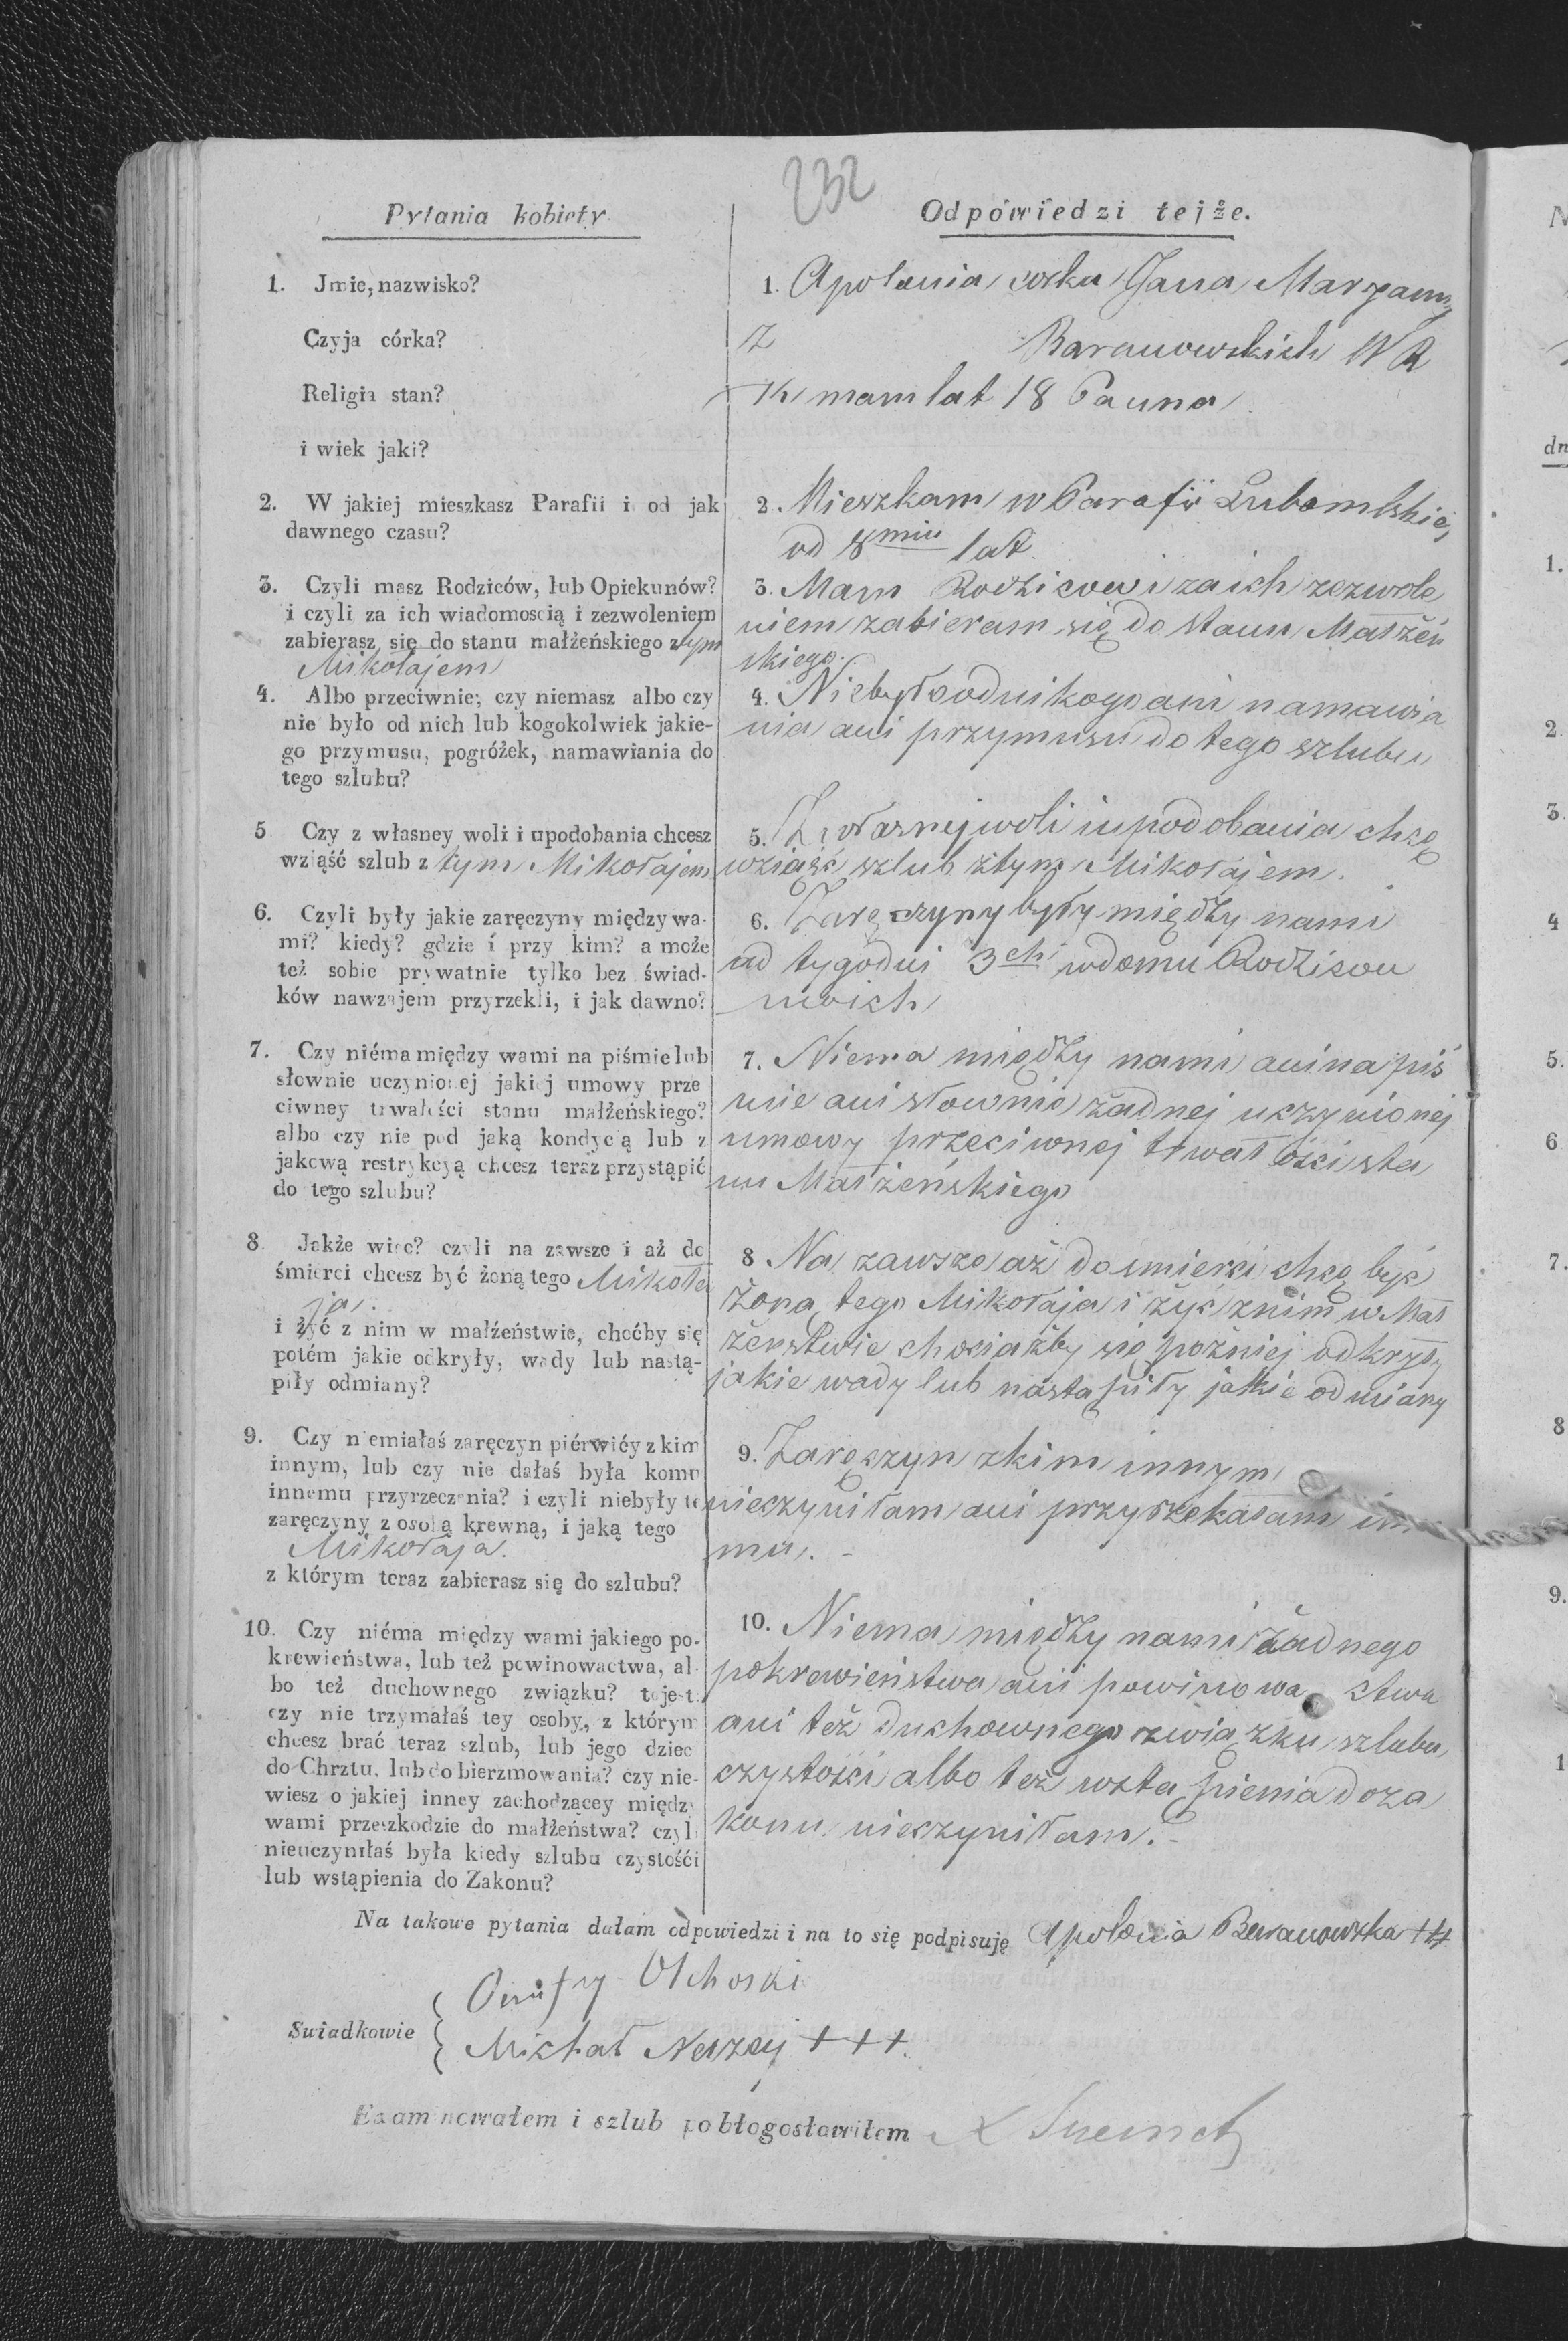 232
Pytania kobiety.
1. Jmie, nazwisko?
Czyja córka?
Religia stan?
i wiek jaki?
2. W jakiej mieszkasz Parafii i od jak
dawnego czasu?
3. Czyli masz Rodziców, lub Opiekunów?
i czyli za ich wiadomoscią i zezwoleniem
zabierasz się do stanu małżeńskiego z tym
Mikołajem
4. Albo przeciwnie; czy niemasz albo czy
nie było od nich lub kogokolwiek jakie-
go przymusu, pogróżek, namawiania do
tego szlubu?
5 Czy z własney woli i upodobania chcesz
wziąść szlub z tym Mikołajem
6. Czyli były jakie zaręczyny między wa-
mi? kiedy? gdzie i przy kim? a może
też sobie prywatnie tylko bez świad-
ków nawzajem przyrzekli, i jak dawno?
7. Czy niéma między wami na piśmie lub
słownie uczynionej jakiej umowy prze
ciwney trwałości stanu małżeńskiego?
albo czy nie pod jaką kondycą lub z
jakową restrykcyą chcesz teraz przystąpić
do tego szlubu?
8. Jakże wiec? czyli na zawsze i aż do
śmierci chcesz być żoną tego Mikoła
ja.
i żyć z nim w małżeństwie, choćby się
potém jakie odkryły, wady lub nastą-
piły odmiany?
9. Czy niemiałaś zaręczyn piérwićy z kim
innym, lub czy nie dałaś była komu
innemu przyrzeczenia? i czyli niebyły te
zaręczyny z osobą krewną, i jaką tego
Mikołaja.
z którym teraz zabierasz się do szlubu?
10. Czy niéma między wami jakiego po-
krewieństwa, lub też powinowactwa, al-
bo też duchownego związku? to jest:
czy nie trzymałaś tey osoby, z którym
chcesz brać teraz szlub, lub jego dziec
do Chrztu, lub do bierzmowania? czy nie-
wiesz o jakiej inney zachodzącey między
wami przeszkodzie do małżeństwa? czyli
nieuczyniłaś była kiedy szlubu czystośći
lub wstąpienia do Zakonu?
Odpówiedzi tejże.
1. Apolonia corka Jana Maryanny
z Baranowskich W R
K mam lat 18 Panna
2. Mieszkam w Parafii Lubomlskiej
od 8miu lat
3. Mam Rodzicow i za ich zezwole
niem zabieram się do stanu Małżeń
skiego.
4. Niebyło od nikogo ani namawia
nia ani przymusu do tego szlubu
5. Z własnej woli i upodobania chcę
wziąść szlub z tym Mikołajem.
6. Zaręczyny były między nami
od tygodni 3ch w domu Rodzicow
moich
7. Niema między nami ani na piś
mie ani słownie żadnej uczynionej
umowy przeciwnej trwałości sta
nu Małżeńskiego
8 Na zawsze aż do smierci chcę być
żoną tego Mikołaja i żyć z nim w Mał
żenstwie chociażby się pożniej odkryły
jakie wady lub nastąpiły jakie odmiany
9. Zaręczyn z kim innym
nieczyniłam ani przyrzekałam in
mu. -
10. Niema między nami żadnego
pokrewieństwa ani powinowa ctwa
ani też duchownego związku, szlubu
czystości albo też wstąpienia do za
konu nieczyniłam. -
Na takowe pytania dałam odpowiedzi i na to się podpisuję Apolonia Baranowska +++
Swiadkowie
Onufry Olchoski
Michał +++
Examinowałem i szlub pobłogosławiłem X
N
dn
1.
2.
3.
4
5.
6
7.
8
9.
1